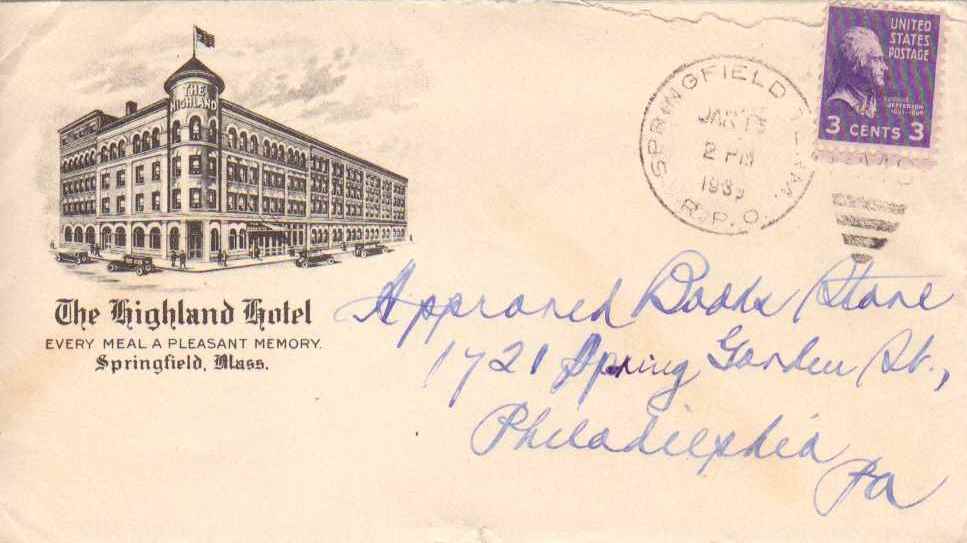 THE
HIGHLAND
The Highland Hotel
EVERY MEAL A PLEASANT MEMORY.
Springfield, Mass.
SPRINGFIELD
JAN
2 PM
R.P.O.
UNITED
STATES
POSTAGE
JEFFERSON
3 CENTS 3
Approved Books Store
1721 Spring Garden St.,
Philadielphia
Pa